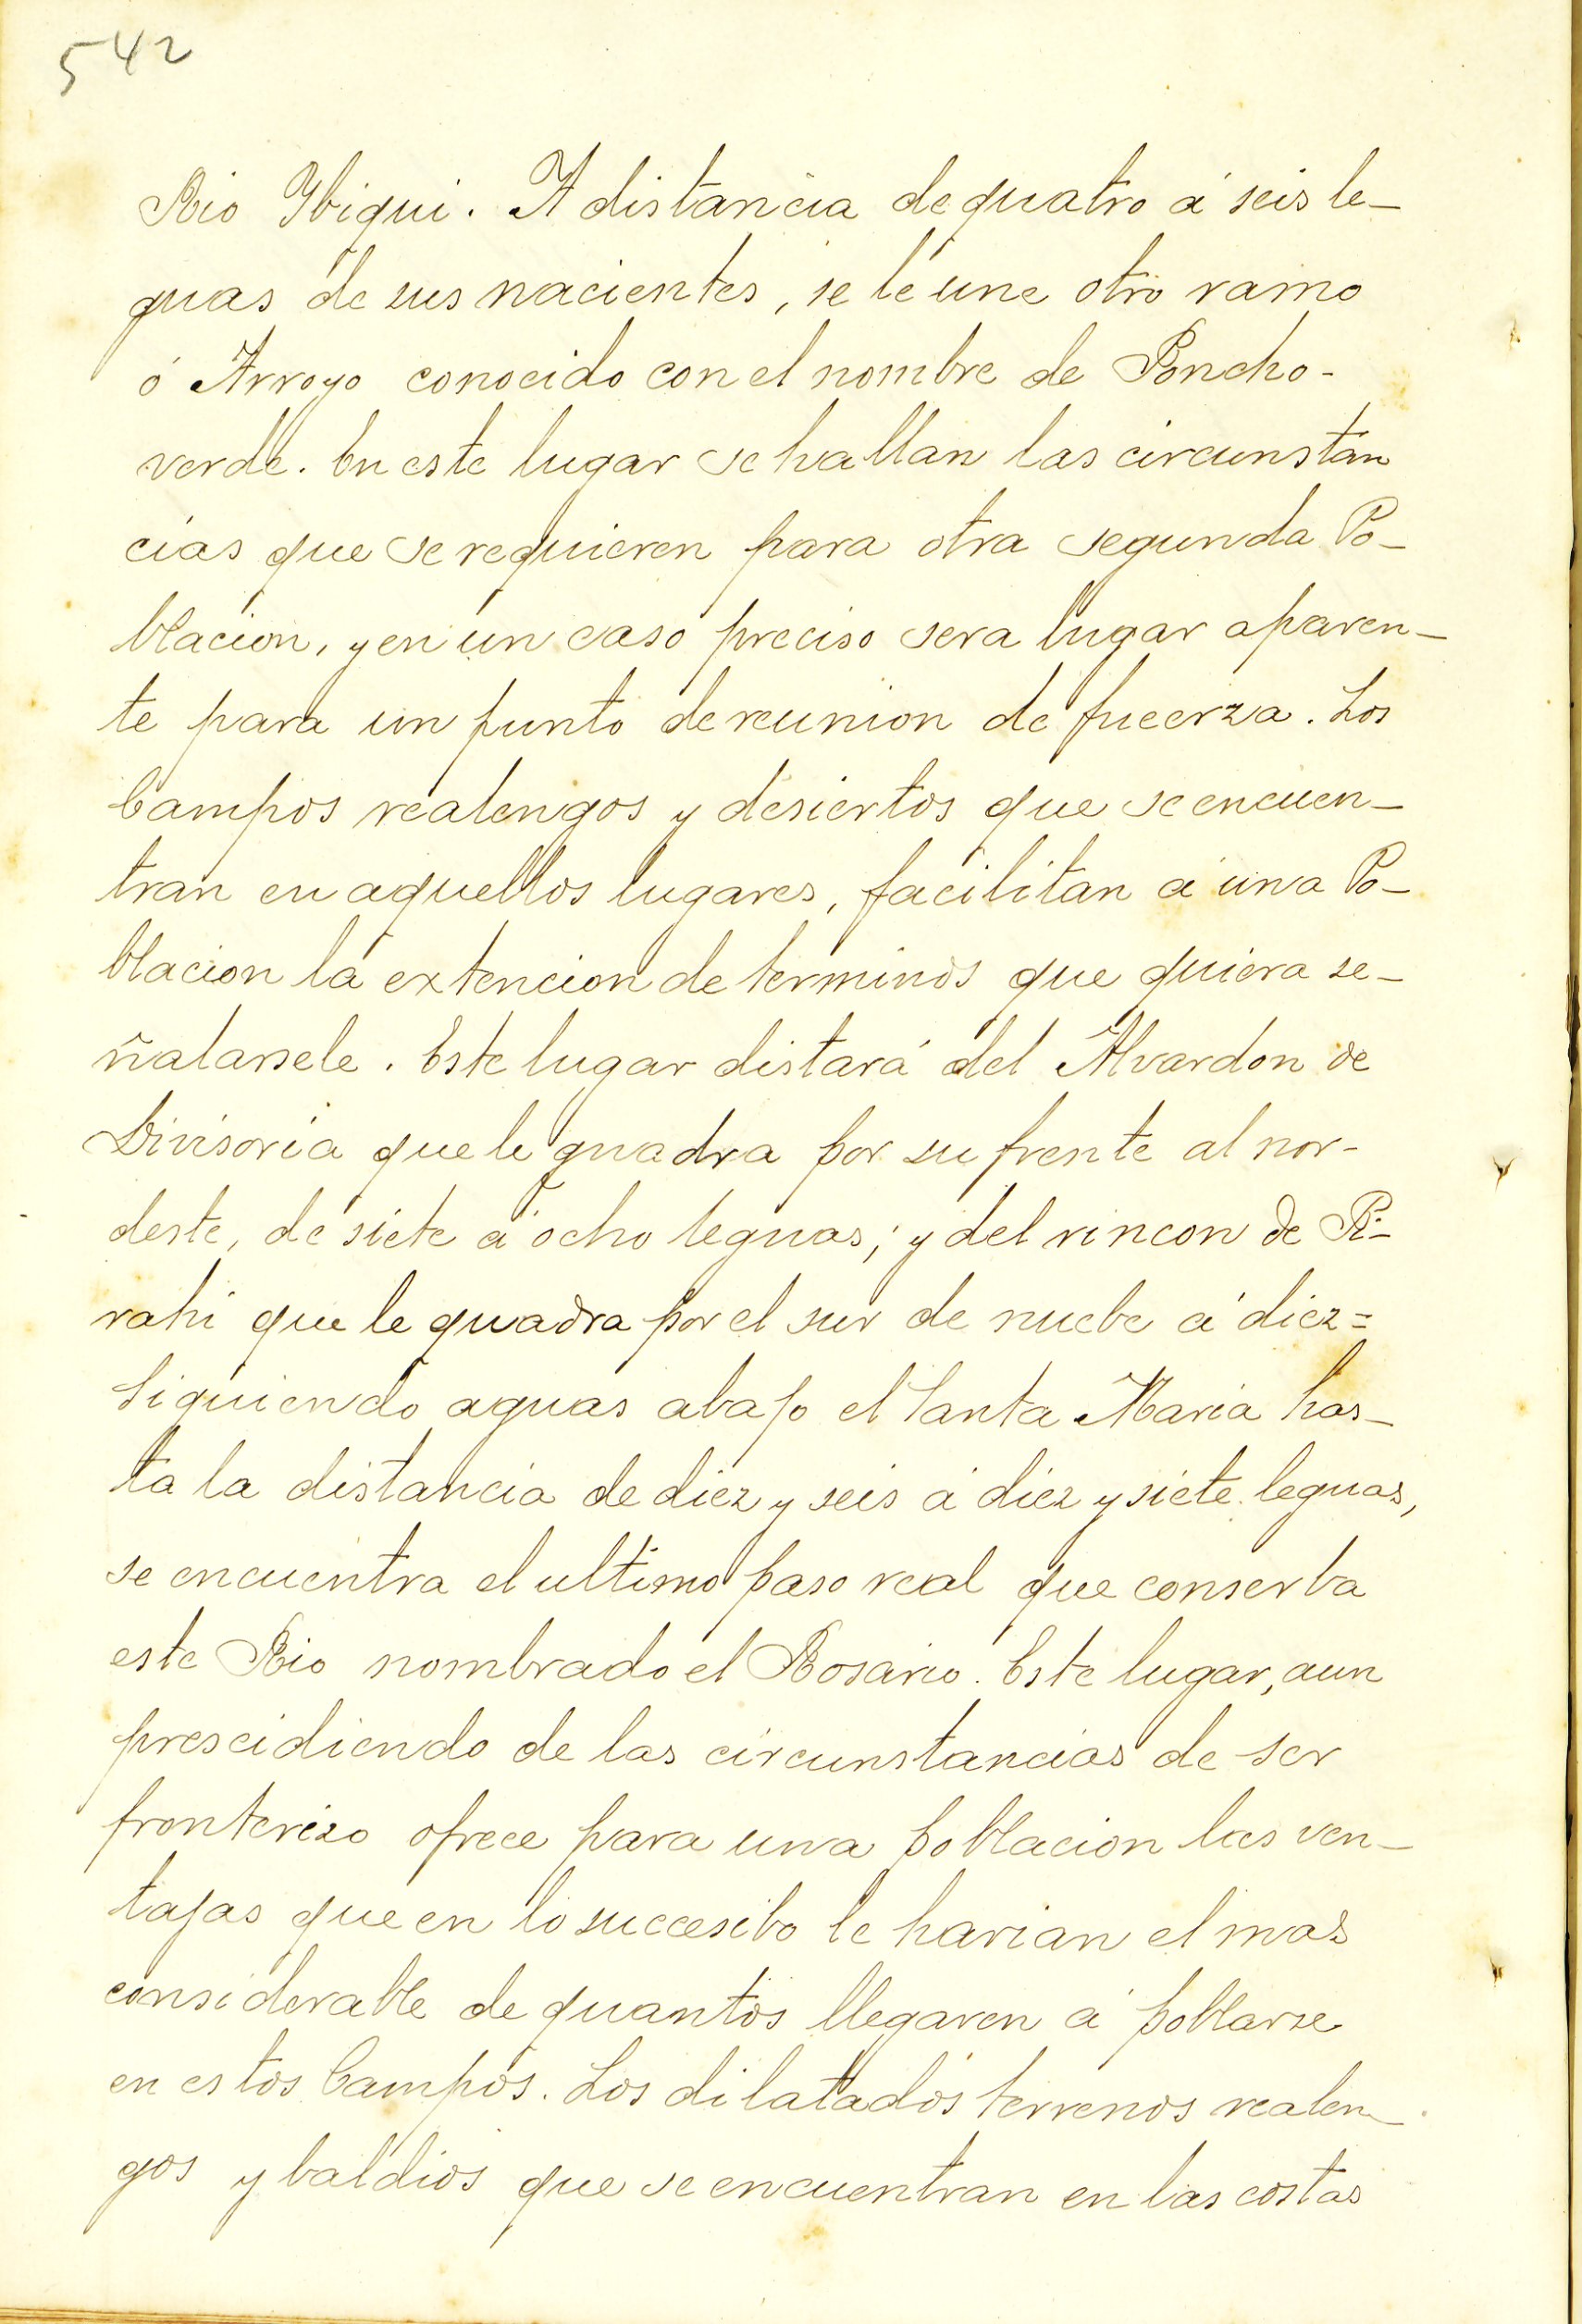 542
Rio Ybiqui. A distancia de quatro á seis le-
guas de sus nacientes, se le une otro ramo
ó Arroyo conocido con el nombre de Poncho-
verde. En este lugar se hallan las circunstan
cias que se requieren para otra segunda Po-
blacion, y en un caso preciso sera lugar aparen-
te para un punto de reunion de fueerza. Los
Campos realengos y desiertos que se encuen-
tran en aquellos lugares, facilitan á una Po-
blacion la extencion de terminos que quiera se-
ñalarsele. Este lugar distará del Alvardon de
Divisoria que le quadra por su frente al nor-
deste, de siete á ocho leguas; y del rincon de Pi-
rahi que le quadra por el sur de nuebe á diez=
Siguiendo aguas abajo el Santa Maria has-
ta la distancia de diez y seis á diez y siete leguas,
se encuentra el ultimo paso real que conserba
este Rio nombrado el Rosario. Este lugar, aun
prescidiendo de las circunstancias de ser
fronterizo ofrece para una poblacion las ven-
tajas que en lo succesibo le harian el mas
considerable de quantos llegaren á poblarse
en estos Campos. Los dilatados terrenos realen-
gos y baldios que se encuentran en las costas